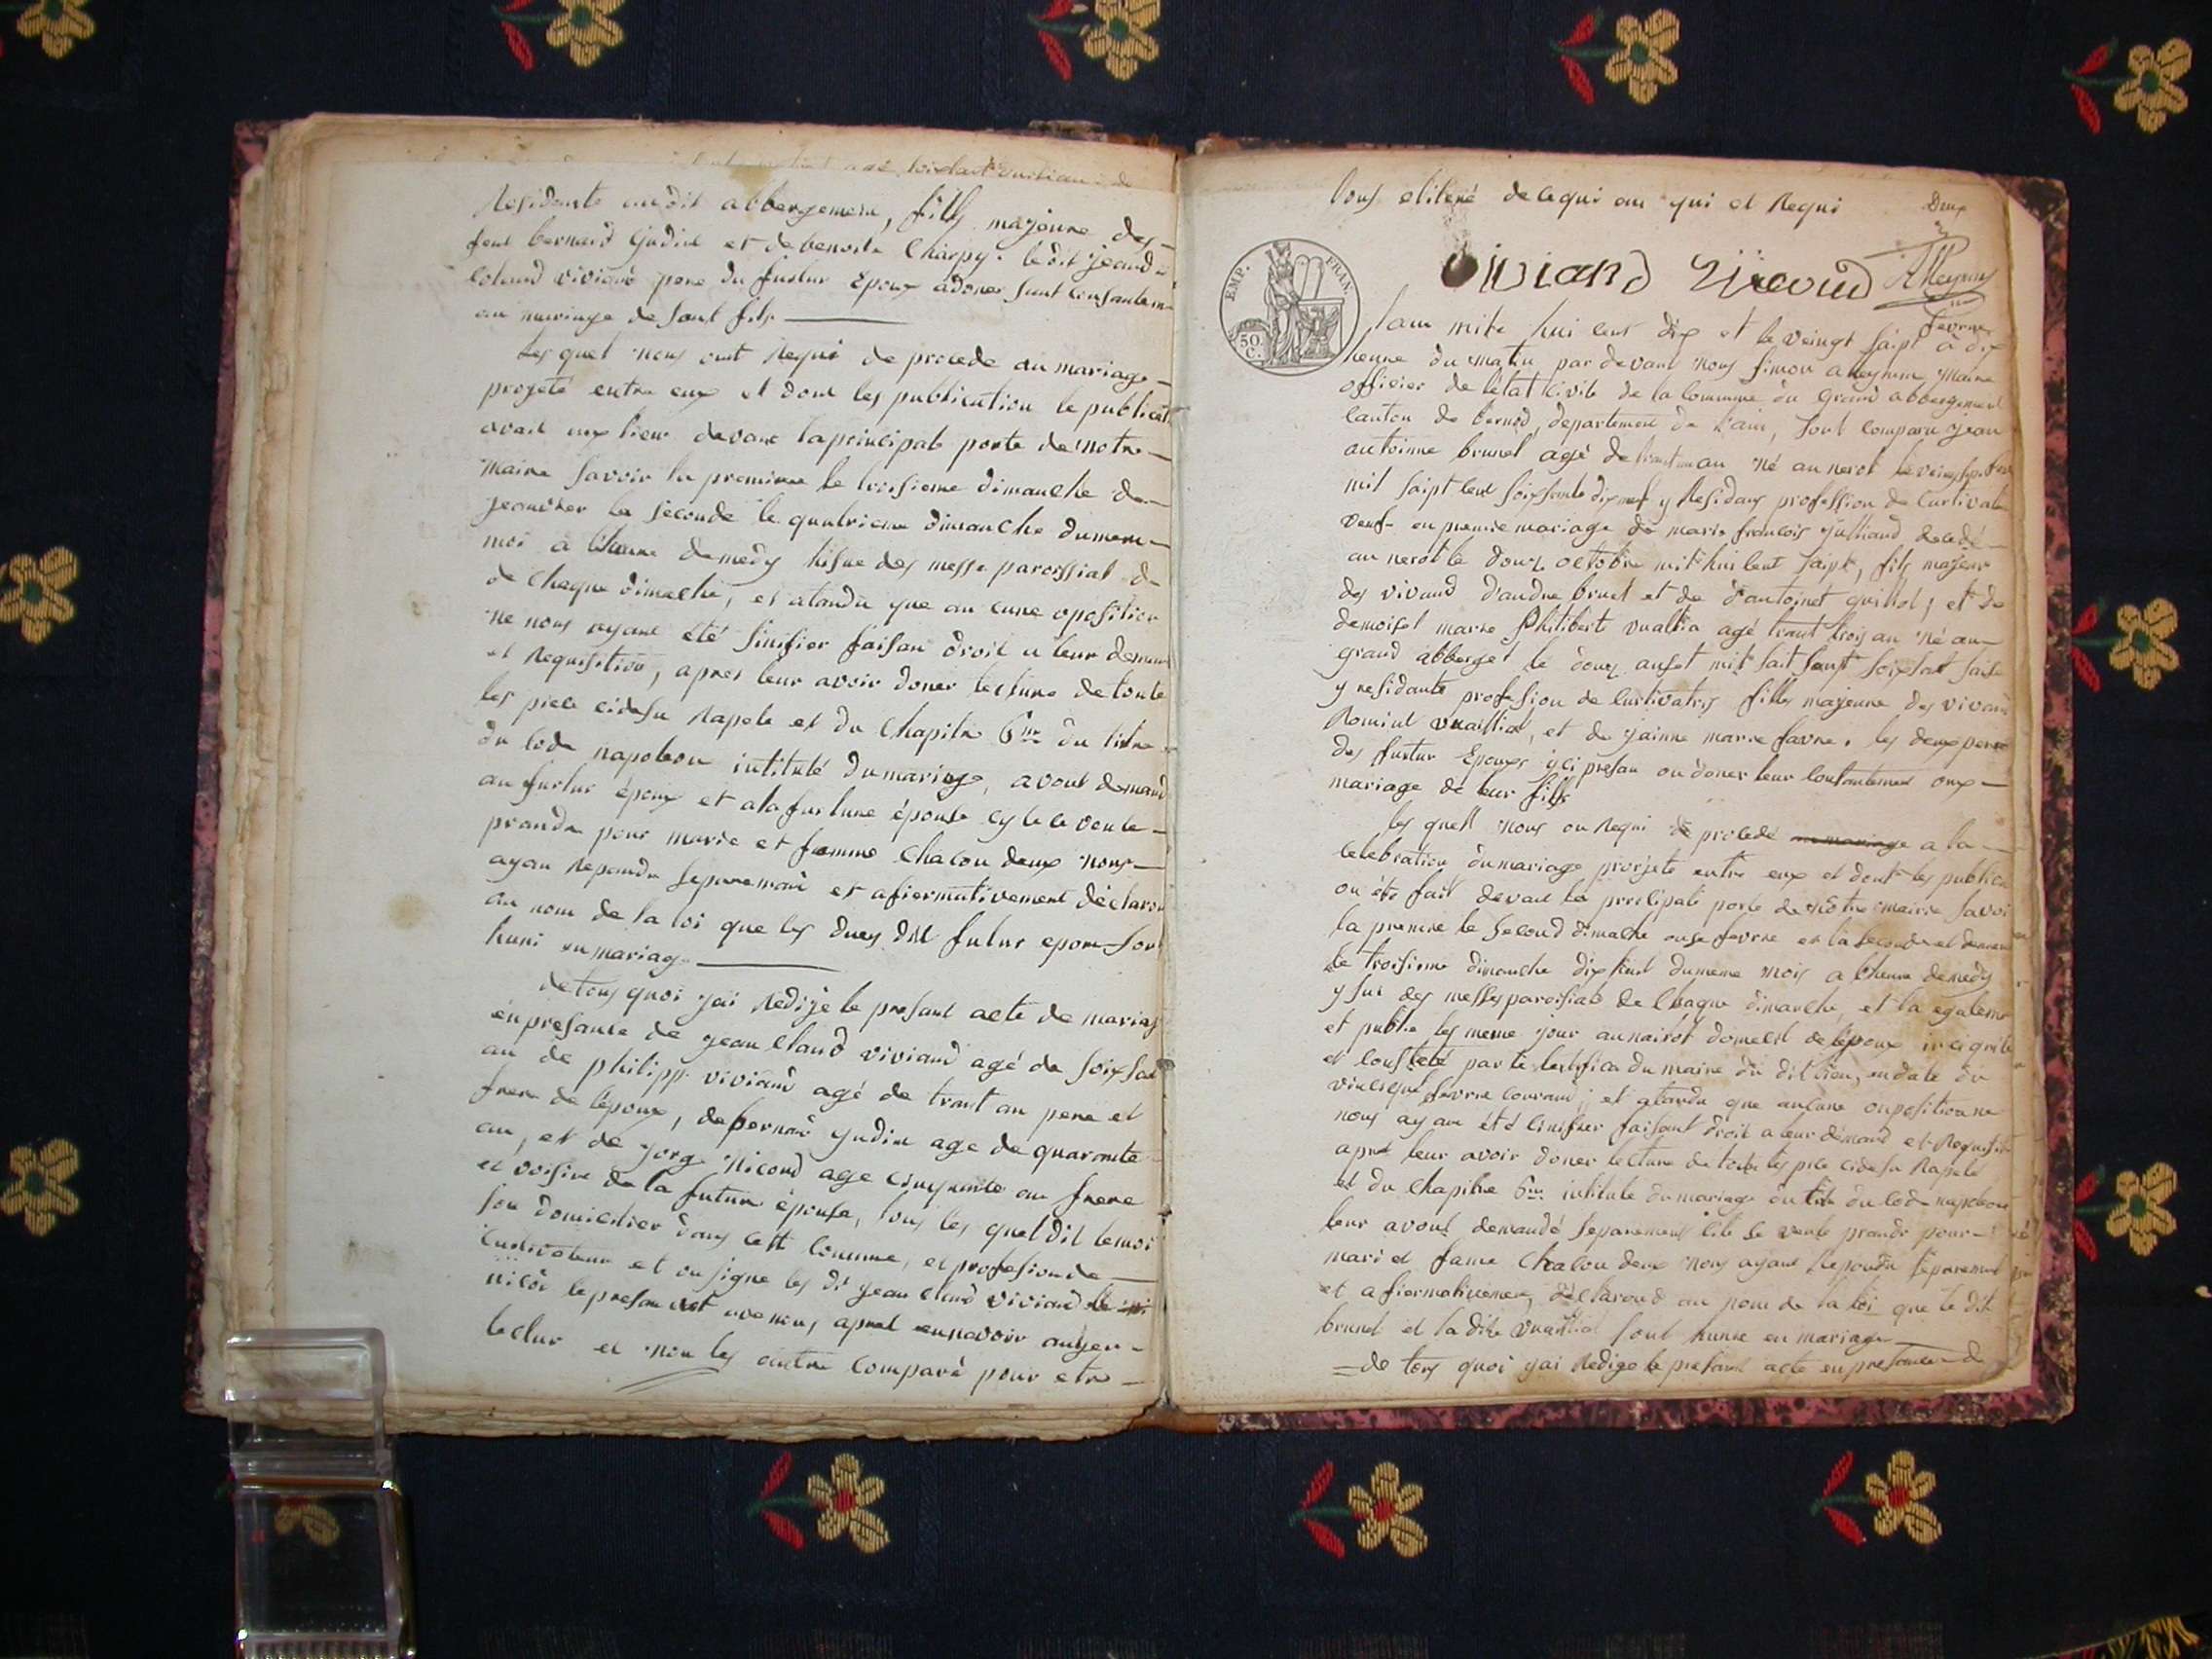 Residente audit abbergement, fille majeure des
feux bernard Gudin et de benoite Charpy. le dit jeand
Claud viviand pere du furtur Epoux adoner sunt consantem
au mariage de sont fils
les quel nous ont Requi de procede au mariage
projeté entre eux et dont les publication le publicat
avait eux lieux devant la principale porte de notre
maire savoir la premiere le troisieme dimanche de
jeanvier la seconde le quatrieme dimanche du meme
moi a lheure demedy hisue des messe paroissial de
de chaque dimache, et atandu que au cune oposition
ne nous ayant été sinifier faisan droit a leur demand
et Requisition, apres leur avoir doner lecture de toute
les piece cidesu Rapele et du Chapitre 6me du titre
du code napoleon intitulé du mariage, avont demand
au furtur époux et a la furture épouse cy le ce veule
prandre pour marie et femme chacou deux nous
ayan Repondu separemant et afiermativement déclaron
au nom de la loi que les deux dit futur epoux sont
huni en mariage
de tous quoi jai Redijé le presant acte de mariag
en presance de jean Claud viviand agé de soixsa
an de philipp viviand agé de trant an pere et
frere de lépoux, de bernard gudin age de quarante
an, et de jorge Nicoud age cinquante an frere
et voisin de la future épouse, tous les quel dit temoi
son domicilier dans cest comune, et profesion de
Cultivateur et on signe les dit jean Claud viviand
nicod le presan act avenou, apret en navoir anser
lectur et non les autre comparé pour etre
tous eliteré de ce qui on qui et Requi
Deux
EMP. FRAN.
50. C.
viviand Nicoud AReymond
fevrie
lan mil hui cent dix et le veingt saipt à dix
heure du matin par devant nous simon a Reymon maire
officier de létat civile de la commune du Grand abbergement
canton de brenod, departement de l'ain, sont comparu jean
antoinne brunet agé de trant un an né au nerot le veingt
mil saipt cent soixsante dixneuf y Residans profession de Curtivate
veuf en premie mariage de marie francois Julliand decedé
au nerot le douz octobre mil hui cent saipt, fils majeur
des vivand dandre brunet et de dantoinet guillot; et de
demoisel marie philibert vuallia agé trant trois an né au
grand abberget le douz aust mil sait sant soixsant saise
y residante profesion de curtivatris fille majeure des vivand
Romint vuaillial, et de jainne marie favre. les deux pere
des furtur Epoux yci presan ou doner leur contantement oux
mariage de leur fills
les quell nous ou Requi de procedé a la
celebration du mariage projeté entre eux et dont les publica
on été fait devant la principale porte de notre mairie savoi
la premire le second dimache onse fevrie et la seconde et derniere
le troisieme dimanche dix huit du meme mois a lheure demedy
y sui des messes paroisiale de chaque dimanche, et la egalemen
et publie les meme jour au nairot domecil de lépoux
et consteté par le certifica du maire du dit lieu, en date du
fevrie courand; et atandu que aucune oupositionne
nous ayan été sinifier faisant droit a leur démand et Requisit
apret leur avoir doner lecture de toute les pice cidesu Rapele
et du Chapitre 6me intitule du mariage du titre du code napoleon
leur avont demandé separement cile se veule prandre pour
mari et fame chacou deux nous ayant Repondu séparement
et afiermativement, déclarond au nom de la loi que le dit
brunet et la dite vuaillial sont hunie en mariage
de tous quoi jai Redige le presant acte en presance de